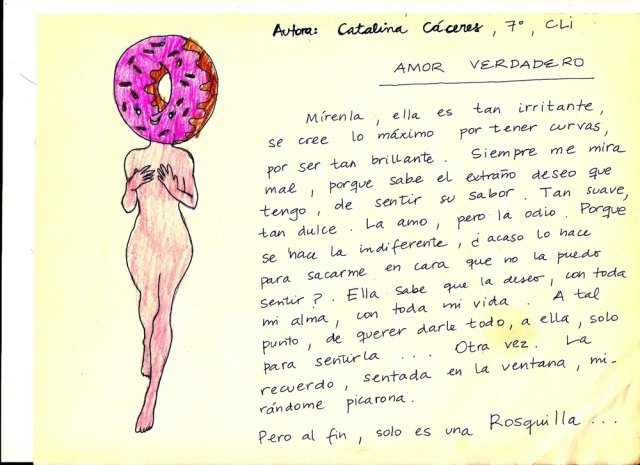 Autora: Catalina Cáceres, 7°, CLi
AMOR VERDADERO
Mírenla, ella es tan irritante,
se cree lo máximo por tener curvas,
por ser tan brillante. Siempre me mira
mal, porque sabe el extraño deseo que
tengo, de sentir su sabor. Tan suave,
tan dulce. La amo, pero la odio. Porque
se hace la indiferente, ¿acaso lo hace
para sacarme en cara que no la puedo
sentir?. Ella sabe que la deseo, con toda
mi alma, con toda mi vida. A tal
punto, de querer darle todo, a ella, solo
para sentirla ... Otra vez. La
recuerdo, sentada en la ventana, mi-
rándome picarona.
Pero al fin, solo es una Rosquilla ...